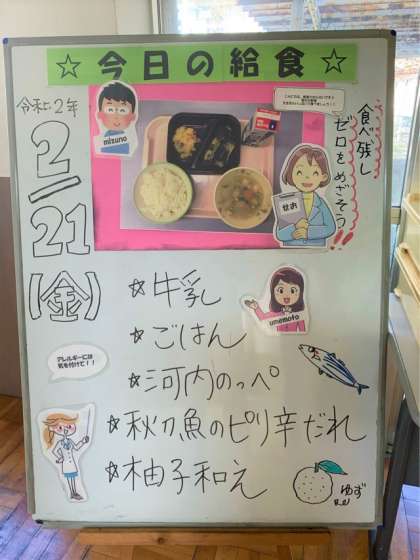 ☆今日の給食☆
令和2年
2/21
(金)
mizuno
食べ残し
ゼロをめざそう!!
せお
☆牛乳
umemoto
☆ごはん
アレルギーには
気を付けて！！
☆河内のっぺ
☆秋刀魚のピリ辛だれ
☆柚子和え
ゆず